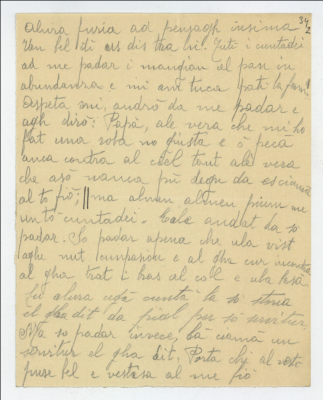 34/2
alura furia ad pensagh insima
Van bel dì as dis tra lü. Tüti i cuntadei
ad me padar i mangian al pan in
abundansa e mi am tuca patì la fam.
Aspeta mì, andrò da me padar e
agh dirò: Papà, ale vera che mi ho
fat una roba no giüsta e ò pecà
anca contra al cel tant ale vera
che asò nanca pü degn da es ciamà
al tò fiö; ma almen al men pieum me
un tò cuntadei. E ale andat la so
padar. So padar apena che ula vist
agh nüt cumpasiòn e al gha cur incontra
al gha trat i bras al col e ula basà.
Lü alura ugà cuntà la so storia
el gha dit da piail per sò servitur
Ma so padar invece, l'à ciamà un
servitur el gha dit. Porta chì al vestì
püse bel e vestesa al me fiö